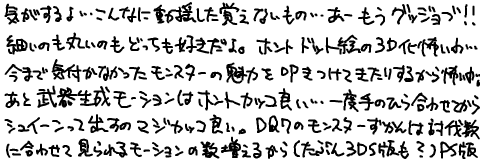 気がするよ…こんなに動揺した覚えないもの…あーもうグッジョブ!!
細いのも丸いのもどっても好きだよ。ホントドット絵の3D化怖いわ…
今まで気付かなかったモンスターの魅力を叩きつけてきたりするから怖いわ。
あと武器生成モーションはホントカッコ良い…一度手のひら合わせてから
シュイーンって出すのマジカッコ良い。DQ7のモンスターずかんは討伐数
に合わせて見られるモーションの数増えるから(たぶん3DS版も?)PS版